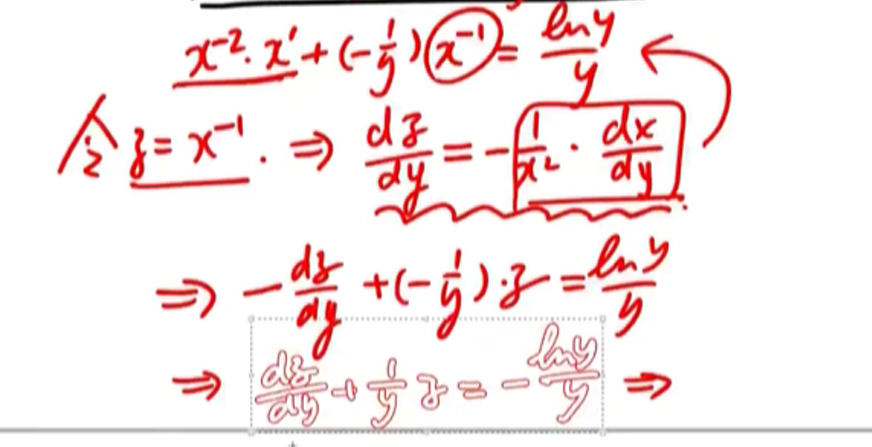 x⁻²·x' + (-1/y) x⁻¹ = ln y / y
令 z = x⁻¹. ⇒ dz/dy = - 1/x² · dx/dy
⇒ - dz/dy + (-1/y)·z = ln y / y
⇒ dz/dy + 1/y z = - ln y / y ⇒